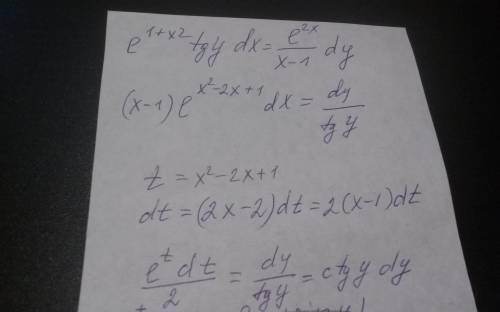 e^{1+x^2} tgy dx = \frac{e^{2x}}{x-1} dy
(x-1) e^{x^2-2x+1} dx = \frac{dy}{tg y}
t = x^2-2x+1
dt = (2x-2)dt = 2(x-1)dt
\frac{e^t dt}{2} = \frac{dy}{tgy} = ctgy dy